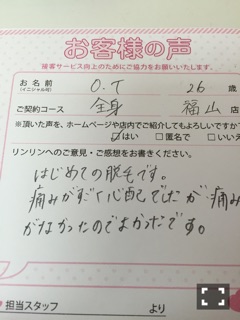 お客様の声
接客サービス向上のためにご協力をお願いいたします。
お名前 (イニシャル可) O.T 26 歳
ご契約コース 全身 福山 店
※頂いた声を、ホームページや店内でご紹介してもよろしいですか
☑はい □匿名で □いいえ
リンリンへのご意見・ご感想をお書きください。
はじめての脱毛です。
痛みがすごく心配でしたが 痛み
がなかったのでよかったです。
担当スタッフ より